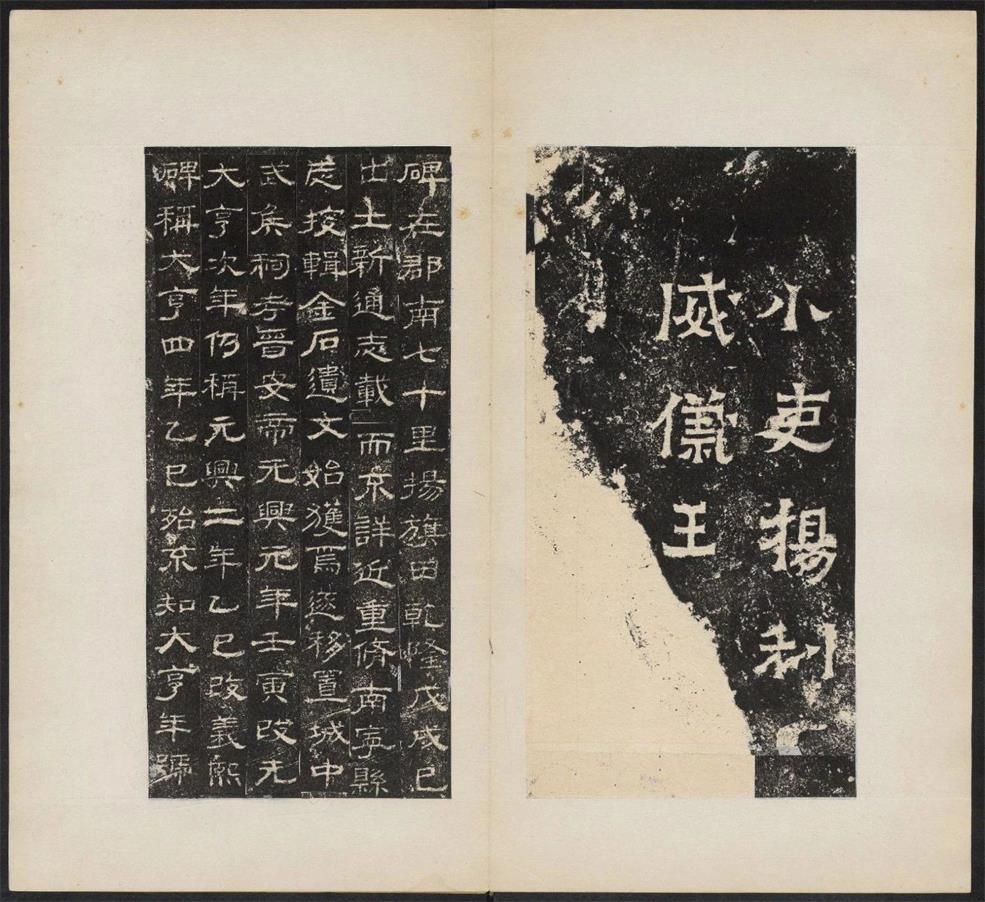 小吏揚利
威儀王
碑在郡南七十里揚旗田乾隆戊戌已
出土新通志載而不詳近重脩南寧縣
志搜輯金石遺文始獲焉遂移置城中
武侯祠考晉安帝元興元年壬寅改元
大亨次年仍稱元興二年乙巳改義熙
碑稱大亨四年乙巳殆不知大亨年號